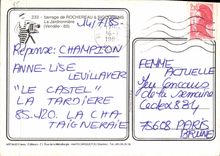 232 - Barrage de ROCHEREAU à
La Jardonnière
(Vendée - 85)
14/7/85
Réponse: CHAMPION
ANNE-LISE
LEVILLAYER
"LE CASTEL"
LA TARDIERE
85120. LA CHA-
TAIGNERAIE
FEMME
ACTUELLE
Jeu concours
de la semaine
Cedex 8
75608 PARIS
BRUNE